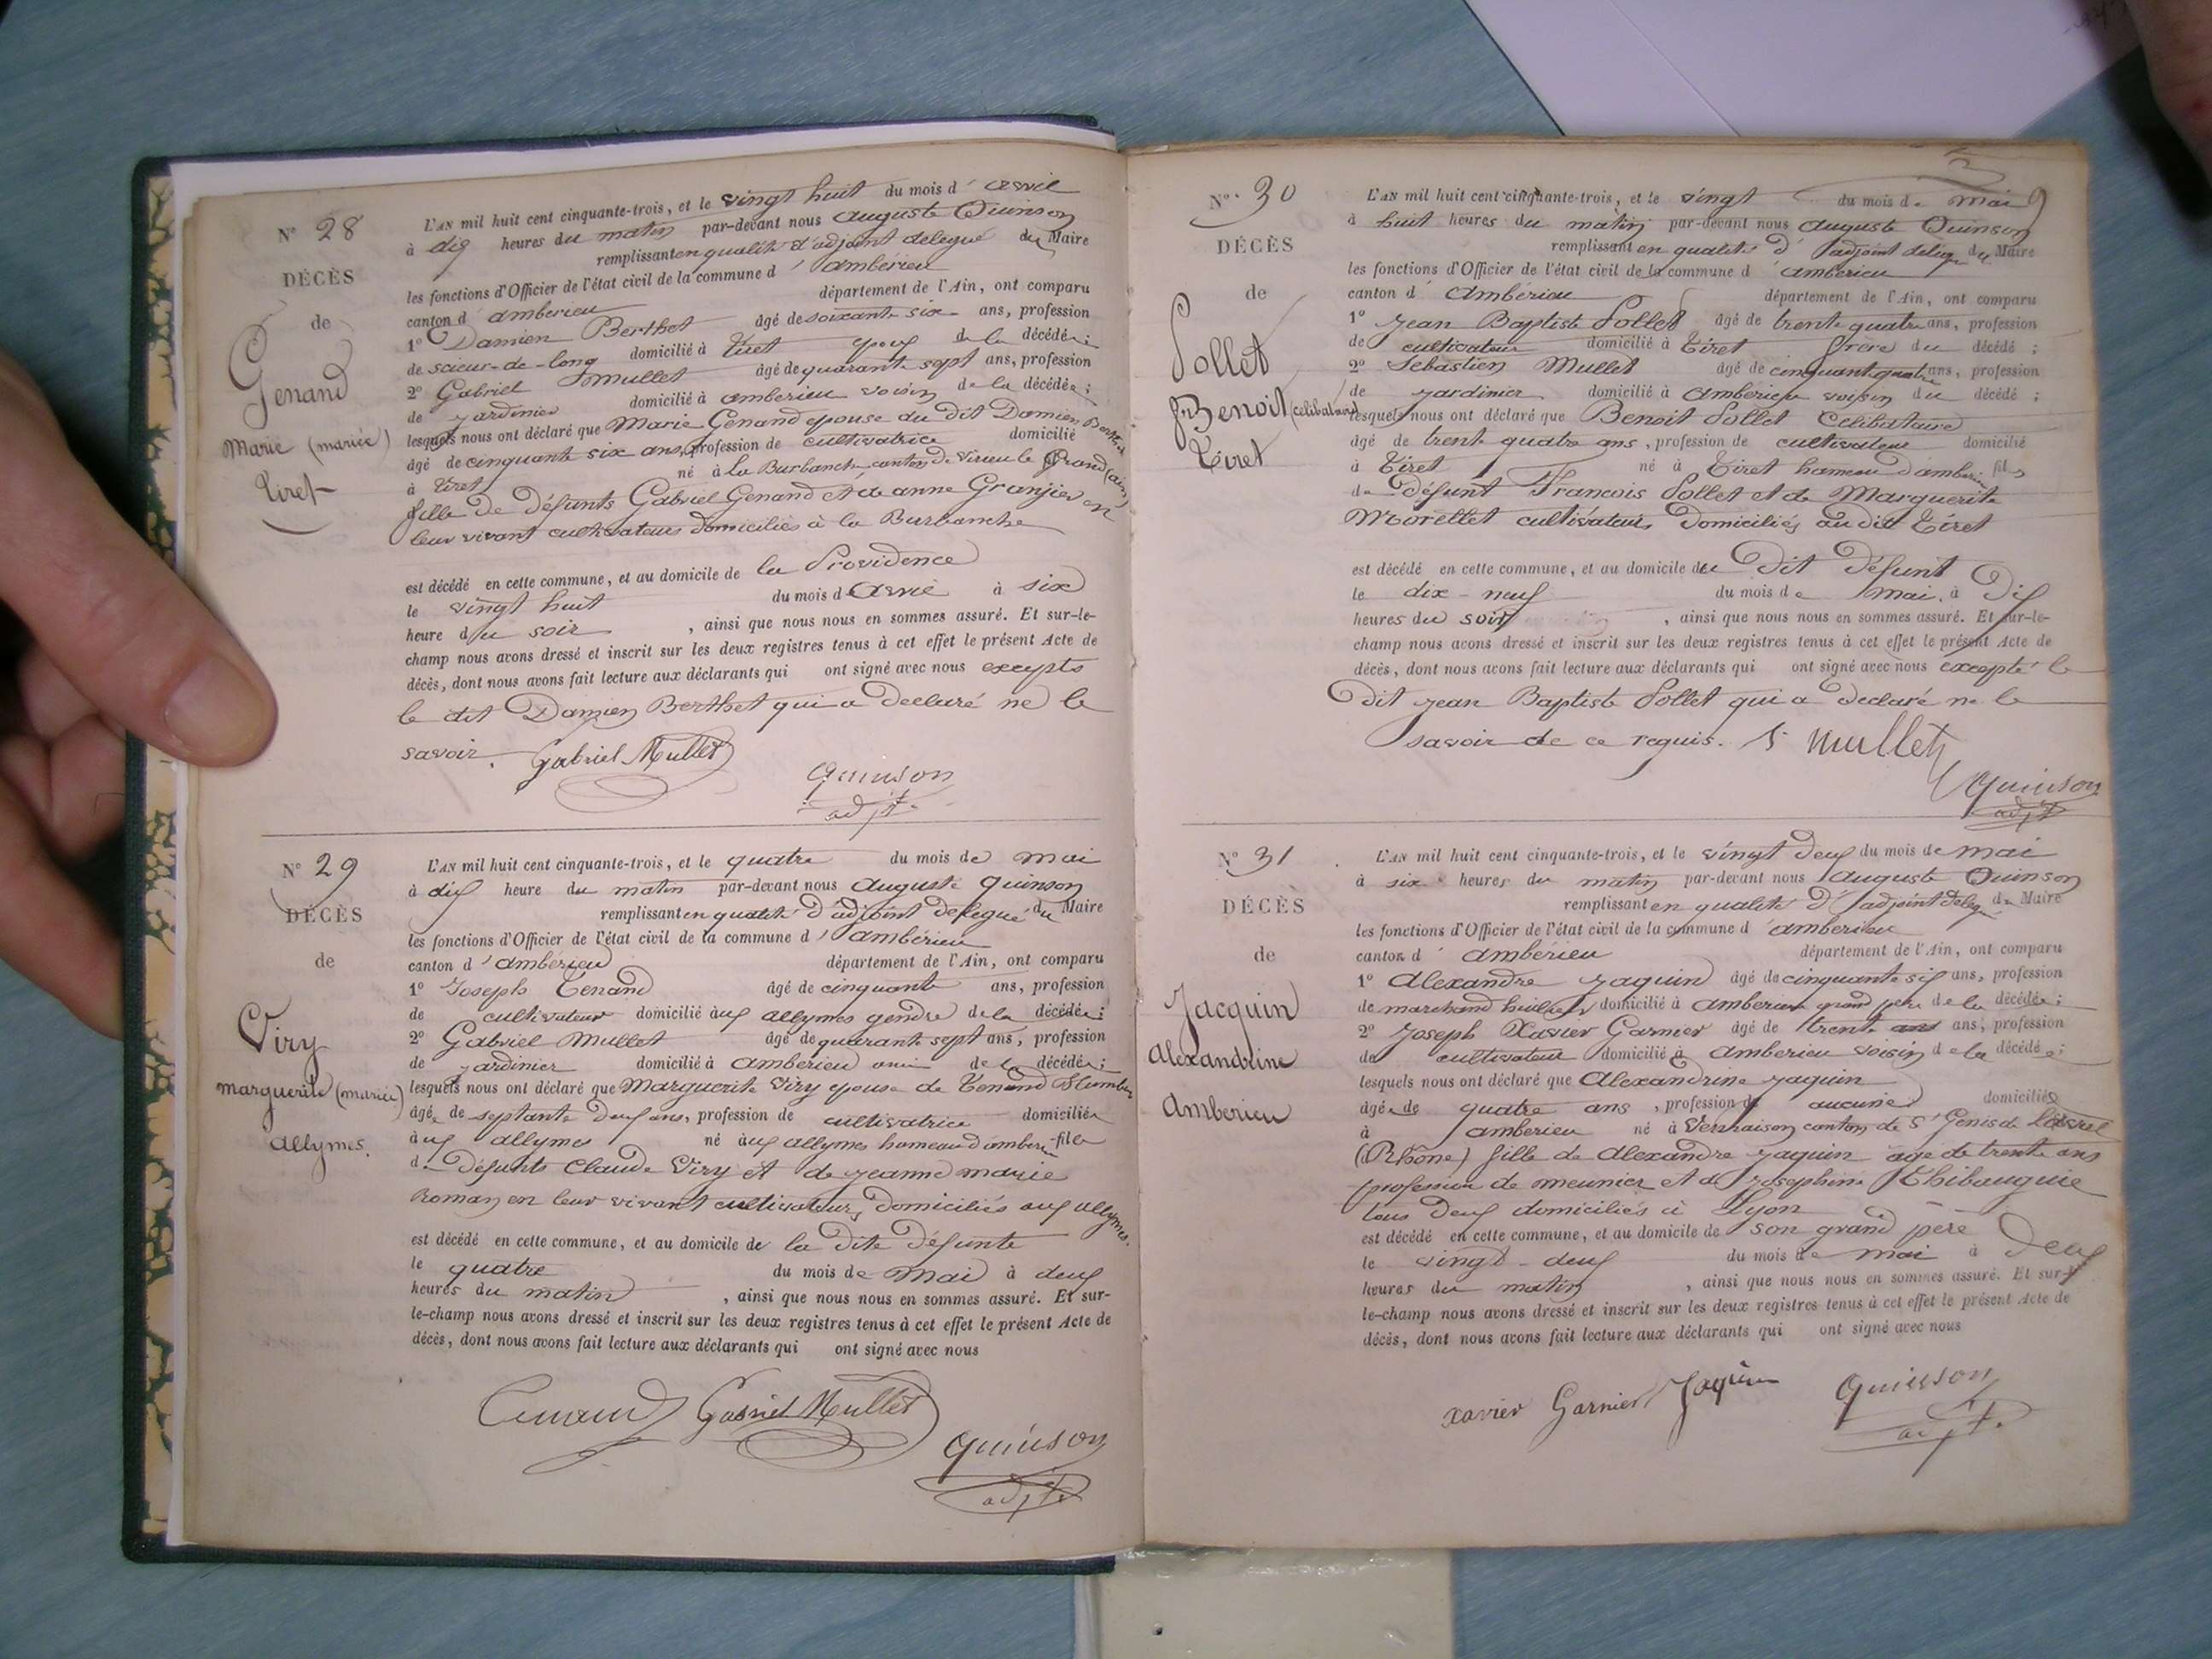 N° 28
DÉCÈS
de
Genand
Marie (mariée)
Tiret
L'AN mil huit cent cinquante-trois, et le vingt huit du mois d'avril
à dix heures du matin par-devant nous auguste Quinson
remplissant en qualité d'adjoint delegué du Maire
les fonctions d'Officier de l'état civil de la commune d'ambérieu
canton d'ambérieu département de l'Ain, ont comparu
1° Damien Berthet âgé de soixante six ans, profession
de scieur-de-long domicilié à Tiret epoux de la décédée;
2° Gabriel Mullet âgé de quarante sept ans, profession
de jardinier domicilié à ambérieu voisin de la décédée;
lesquels nous ont déclaré que Marie Genand epouse du dit Damien Berthet
âgé de cinquante six ans, profession de cultivatrice domicilié
à Tiret né à La Burbanche canton de Virieu le Grand (ain)
fille de défunts Gabriel Genand et de anne Granjier en
leur vivant cultivateurs domiciliés à la Burbanche
est décédé en cette commune, et au domicile de la Providence
le vingt huit du mois d avril à six
heure du soir, ainsi que nous nous en sommes assuré. Et sur-le-
champ nous avons dressé et inscrit sur les deux registres tenus à cet effet le présent Acte de
décès, dont nous avons fait lecture aux déclarants qui ont signé avec nous excepté
le dit Damien Berthet qui a declaré ne le
savoir. Gabriel Mullet
Quinson
adjt
N° 29
DÉCÈS
de
Viry
marguerite (mariée)
allymes.
L'AN mil huit cent cinquante-trois, et le quatre du mois de mai
à dix heure du matin par-devant nous auguste quinson
remplissant en qualité d'adjoint delegué du Maire
les fonctions d'Officier de l'état civil de la commune d'ambérieu
canton d'ambérieu département de l'Ain, ont comparu
1° Joseph Tenand âgé de cinquante ans, profession
de cultivateur domicilié aux allymes gendre de la décédée;
2° Gabriel Mullet âgé de quarante sept ans, profession
de jardinier domicilié à ambérieu ami de la décédée;
lesquels nous ont déclaré que Marguerite Viry epouse de Tenand
âgée de septante deux ans, profession de cultivatrice domiciliée
aux allymes né aux allymes hameau d'ambérieu fille
de défunts Claude Viry et de jeanne marie
Roman en leur vivant cultivateurs domiciliés aux allymes.
est décédé en cette commune, et au domicile de la dite défunte
le quatre du mois de Mai à deux
heures du matin, ainsi que nous nous en sommes assuré. Et sur-
le-champ nous avons dressé et inscrit sur les deux registres tenus à cet effet le présent Acte de
décès, dont nous avons fait lecture aux déclarants qui ont signé avec nous
Tenand Gabriel Mullet
quinson
adjt
N° 30
DÉCÈS
de
Pollet
Benoit (celibataire)
Tiret
L'AN mil huit cent cinquante-trois, et le vingt du mois de mai
à huit heures du matin par-devant nous auguste Quinson
remplissant en qualité d'adjoint deleg du Maire
les fonctions d'Officier de l'état civil de la commune d'ambérieu
canton d'Ambérieu département de l'Ain, ont comparu
1° Jean Baptiste Pollet âgé de trente quatre ans, profession
de cultivateur domicilié à Tiret frère du décédé;
2° Sebastien Mullet âgé de cinquante quatre ans, profession
de jardinier domicilié à Ambérieu voisin du décédé;
lesquels nous ont déclaré que Benoit Pollet Célibataire
âgé de trente quatre ans, profession de cultivateur domicilié
à Tiret né à Tiret hameau d'ambérieu fils
de défunt Francois Pollet et de Marguerite
Morellet cultivateurs domiciliés au dit Tiret
est décédé en cette commune, et au domicile du Dit défunt
le dix-neuf du mois de mai à Dix
heures du soir, ainsi que nous nous en sommes assuré. Et sur-le-
champ nous avons dressé et inscrit sur les deux registres tenus à cet effet le présent Acte de
décès, dont nous avons fait lecture aux déclarants qui ont signé avec nous excepté le
Dit jean Baptiste Pollet qui a declaré ne le
savoir de ce requis. S Mullet
Quinson
adjt
N° 31
DÉCÈS
de
Jacquin
Alexandrine
Amberieu
L'AN mil huit cent cinquante-trois, et le vingt deux du mois de mai
à six heures du matin par-devant nous Auguste Quinson
remplissant en qualité d'adjoint delegué du Maire
les fonctions d'Officier de l'état civil de la commune d'ambérieu
canton d'ambérieu département de l'Ain, ont comparu
1° Alexandre Jaquin âgé de cinquante six ans, profession
de marchand domicilié à ambérieu grand père de la décédée;
2° Joseph Xavier Garnier âgé de trente ans ans, profession
de cultivateur domicilié à amberieu voisin de la décédée;
lesquels nous ont déclaré que Alexandrine Jaquin
âgée de quatre ans, profession de aucune domiciliée
à amberieu né à Vernaison canton de St Genis de Laval
(Rhône) fille de Alexandre Jaquin âgé de trente ans
profession de meunier et de Josephine
tous deux domiciliés à Lyon
est décédé en cette commune, et au domicile de son grand père
le vingt-deux du mois de mai à deux
heures du matin, ainsi que nous nous en sommes assuré. Et sur-
le-champ nous avons dressé et inscrit sur les deux registres tenus à cet effet le présent Acte de
décès, dont nous avons fait lecture aux déclarants qui ont signé avec nous
Xavier Garnier Jaquin Quinson
adjt